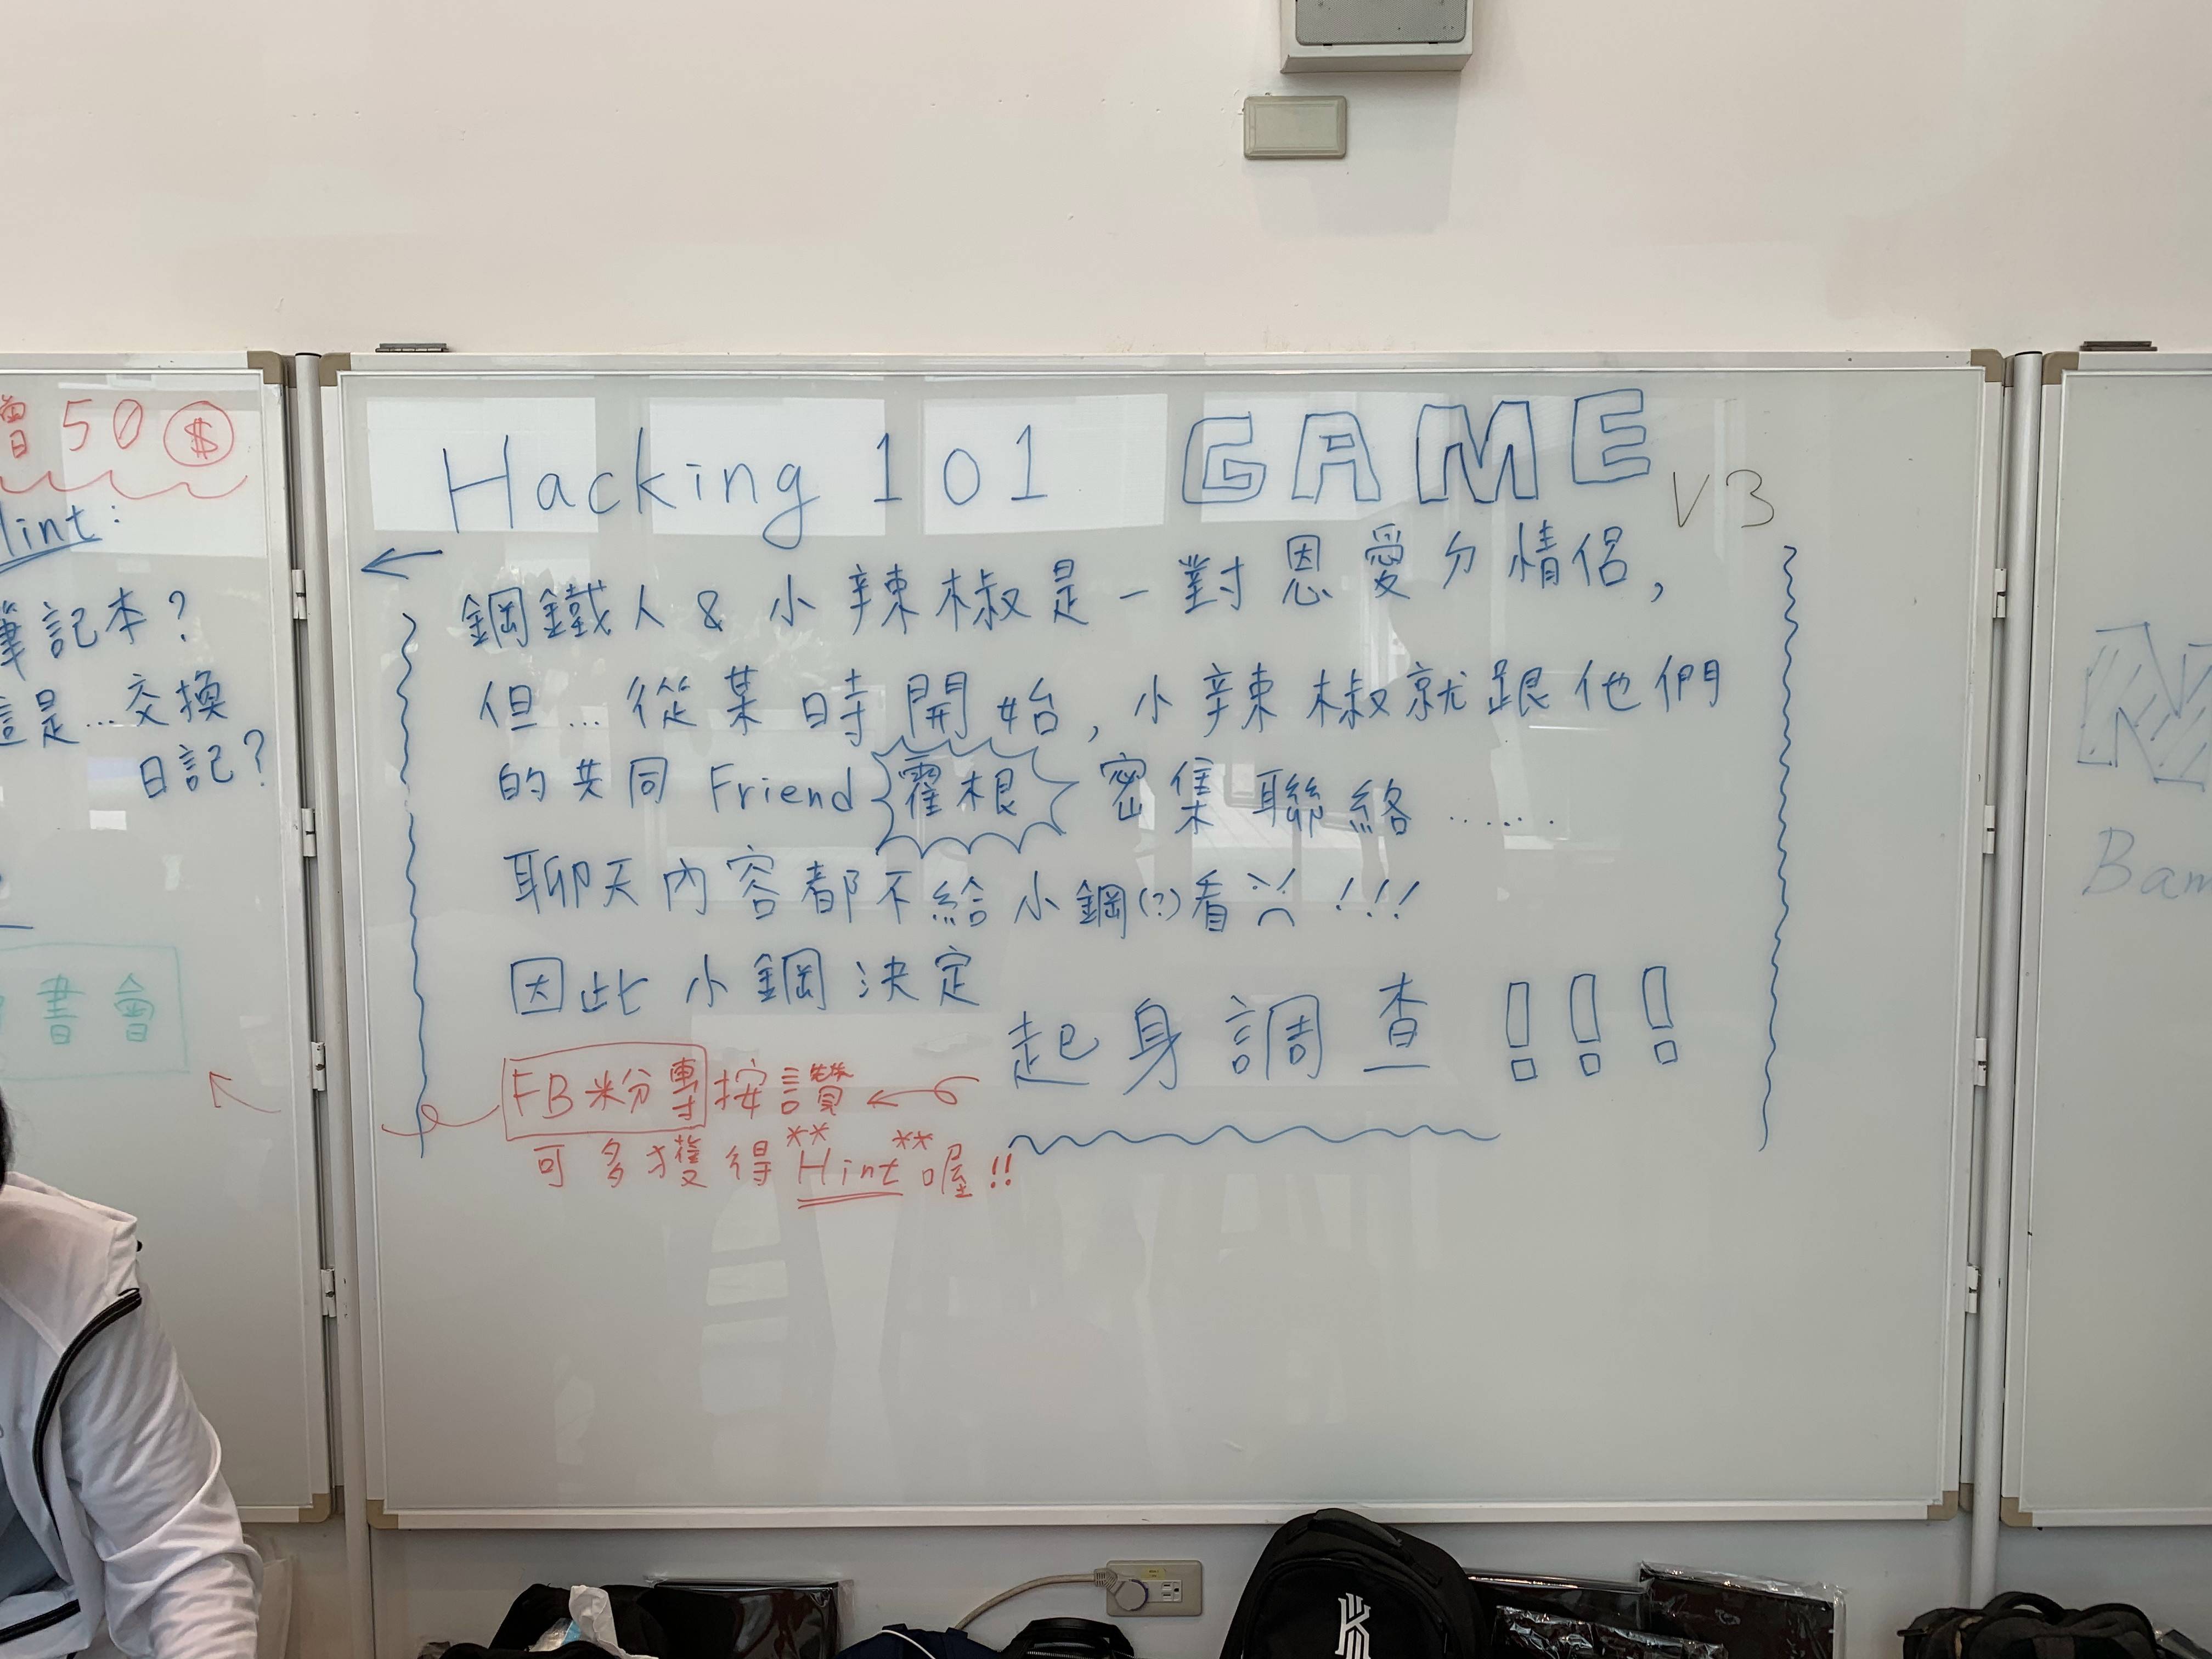 50 $
Hint:
筆記本?
這是...交換
日記?
書會
Hacking 101 GAME V3
鋼鐵人 & 小辣椒是一對恩愛ㄉ情侶,
但...從某時開始,小辣椒就跟他們
的共同 Friend 霍根 密集聯絡......
聊天內容都不給小鋼(?)看 !!!
因此小鋼決定
起身調查!!!
FB粉專按讚
可多獲得**Hint**喔!!
Bam